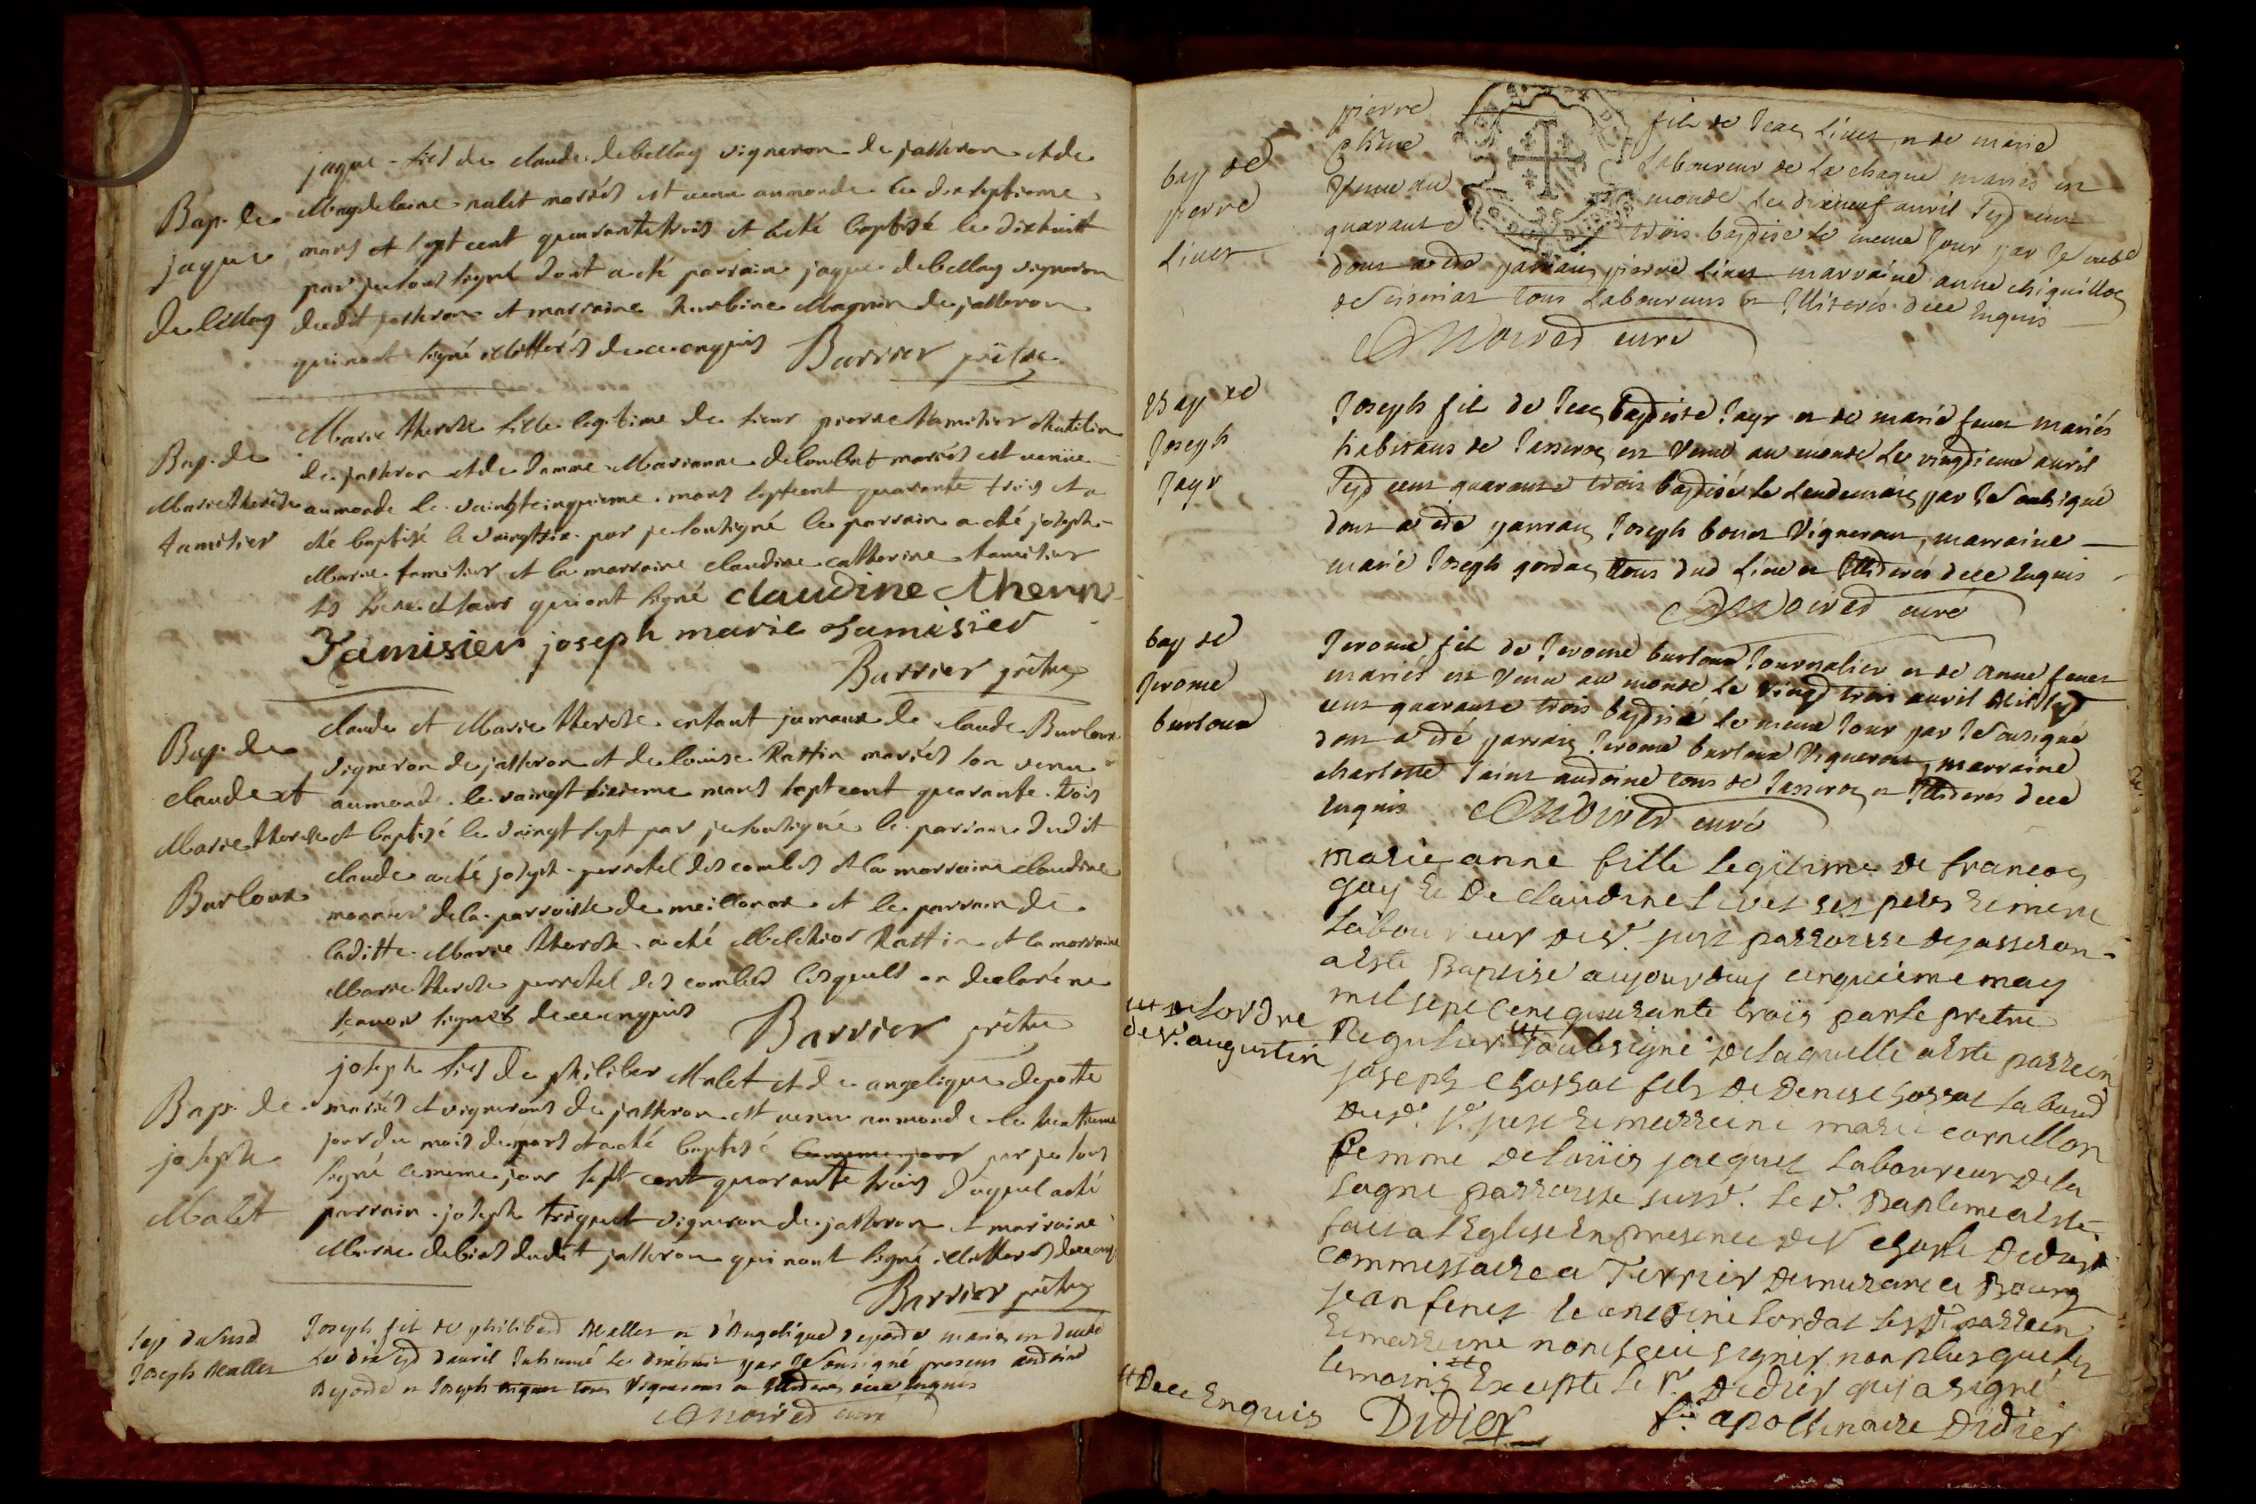 Bap. de
jaque
debellay
jaque fils de claude debellay vigneron de jasseron et de
Magdelaine nalet mariés est venu au monde le dixseptieme
mars et sept cent quarante trois et a esté baptisé le dixhuit
par je sous signé dont a eté parrain jaque debellay vigneron
dudit jasseron et marraine Magnin de jasseron
qui nont signé illitterés de ce enquis Barrier prêtre
Bap. de
Marie therese
tamisier
Marie therese fille legitime de sieur pierre tamisier
de jasseron et de damme Marianne delombat mariés est venüe
au monde le vaingtcinquieme mars septcent quarante trois et a
eté baptisé le vaingtsix par je soussigné le parrain a eté joseph
Marie tamisier et la marraine claudine catherine tamisier
frere et soeur qui ont signé claudine
tamisier joseph marie tamisier
Barrier prêtre
Bap. de
claude et
Marie therese
Burloux
claude et Marie therese enfant jumaux de claude Burloux
vigneron de jasseron et de louise Rattin mariés son venu
au monde le vaingt sixieme mars septcent quarante trois
et baptisé le vaingt sept par je soussigné le parrain dudit
claude a eté joseph perretel des combes et la marraine claudine
monnier de la parroisse de meillonax et le parrain de
laditte Marie therese a eté Melchior Rattin et la marraine
Marie therese perretel des combes lesquels on declaré ne
scavoir signer de ce enquis Barrier prêtre
Bap. de
joseph
Malet
joseph fils de philiber Malet et de angelique deporte
mariés et vignerons de jasseron est venu au monde le trentieme
jour du mois de mars et a eté baptisé par je sous
signé le meme jour sept cent quarante trois duquel a eté
parrain joseph triquet vigneron de jasseron et marraine
Marie debias dudit jasseron qui nont signé illitterés de ce enq
Barrier prêtre
Joseph Mallet
Joseph fil de philiberd Mallet et d'Angelique deporde mariés est decedé
le dixsepd d'avril Inhumé le dixhuit par Je sousigné presens andoine
deporde et Joseph triquet tous vignerons et Illiderés de ce Enquis
Moired curé
bap de
pierre
Livet
pierre fils de Jean Livet et de marie
laboureur de la chaque mariés est
venu au monde le dixneuf avril sepd cent
quarante trois baptisé le meme Jour par Je curé
dont a eté parrain pierre Livet marraine anne chiquilloz
tous laboureurs et Illiterés de ce Enquis
Moired curé
Bap de
Joseph
Jayr
Joseph fil de Jean baptiste Jayr et de marie fevet mariés
habitans de Jasseron est venu au monde le vingdieme avril
sepd cent quarante trois baptisé le lendemain par Je soubsigné
dont a eté parrain Joseph bonet vigneron, marraine
marie Joseph gordac tous dud lieu et Illiderés de ce Enquis
Moired curé
bap de
Jerome
burloux
Jerome fil de Jerome burloux Journalier et de anne fevet
mariés est venu au monde le vingd trois avril mil sepd
cent quarante trois baptisé le meme Jour par Je sousigné
dont a eté parrain Jerome burloux vigneron, marraine
charlotte saint andoine tous de Jasseron et Illiderés de ce
Enquis Moired curé
marie anne fille legitime de francois
guy Et De claudine Livet ses pere Et mere
Laboureur de St. just parroisse de jasseron
a esté Baptisé aujourdhuy cinquieme may
mil sept Cent quarante trois par le pretre
Regulier ## soubsigné De laquelle a esté parrein
## de lordre
de St. augustin
joseph Chossat fils De Denis Chossat Labour
Dud. St. just Et marreine marie cornillon
femme De loüis jacquet Laboureur De la
Lagne parroisse susd. Le d. Bapteme a esté
fait a l'Eglise En presence de Sr charle Didier
commissaire a Terrier demurant a Bourg
jean fenet et antoine Cordat les d. parrein
Et marreine nont sceu signer non plus que les
temoins ## Excepté le Sr. Didier qui a signé
## De ce Enquis
Didier
fr. apollinaire Didier